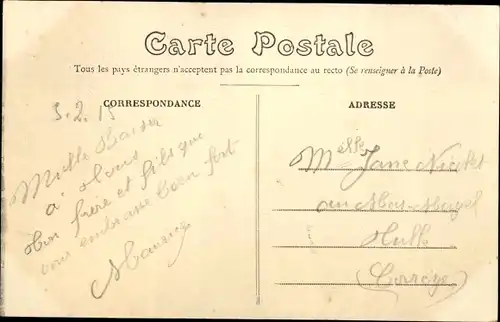 Carte Postale
Tous les pays étrangers n'acceptent pas la correspondance au recto (Se renseigner à la Poste)
CORRESPONDANCE
3.2.15
Mille
a vous
ton frère et fils que
vous embrasse bien fort
Maurice
ADRESSE
Melle Jane
au Mas
(Corrèze)